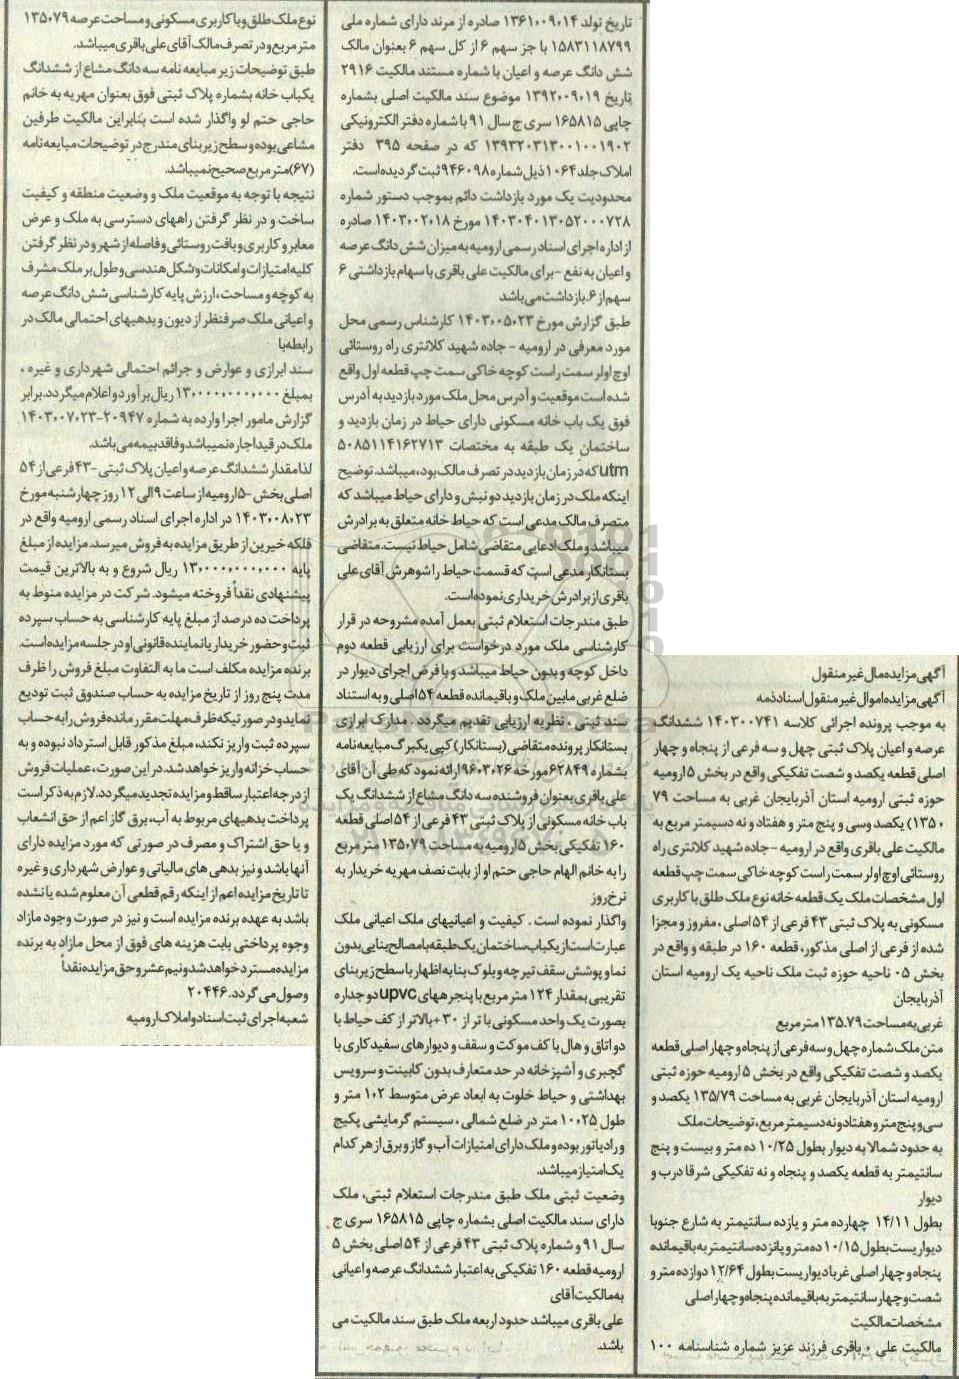 آگهی مزایده مال غیر منقول
آگهی مزایده اموال غیر منقول اسناد ذمه
به موجب پرونده اجرائی کلاسه ۱۴۰۳۰۰۷۴۱ ششدانگ
عرصه و اعیان پلاک ثبتی چهل و سه فرعی از پنجاه و چهار
اصلی قطعه یکصد و شصت تفکیکی واقع در بخش ۵ ارومیه
حوزه ثبتی ارومیه استان آذربایجان غربی به مساحت ۷۹
۱۳۵۰) یکصد وسی و پنج متر و هفتاد و نه دسیمتر مربع به
مالکیت علی باقری واقع در ارومیه - جاده شهید کلانتری راه
روستائی اوچ اولر سمت راست کوچه خاکی سمت چپ قطعه
اول مشخصات ملک یک قطعه خانه نوع ملک طلق با کاربری
مسکونی به پلاک ثبتی ۴۳ فرعی از ۵۴ اصلی ، مفروز و مجزا
شده از فرعی از اصلی مذکور، قطعه ۱۶۰ در طبقه و واقع در
بخش ۰۵ ناحیه حوزه ثبت ملک ناحیه یک ارومیه استان
آذربایجان
غربی به مساحت ۱۳۵.۷۹ متر مربع
متن ملک شماره چهل و سه فرعی از پنجاه و چهار اصلی قطعه
یکصد و شصت تفکیکی واقع در بخش ۵ ارومیه حوزه ثبتی
ارومیه استان آذربایجان غربی به مساحت ۱۳۵/۷۹ یکصد و
سی و پنج متر و هفتاد و نه دسیمتر مربع، توضیحات ملک
به حدود شمالا به دیوار بطول ۱۰/۲۵ ده متر و بیست و پنج
سانتیمتر به قطعه یکصد و پنجاه و نه تفکیکی شرقا درب و
دیوار
بطول ۱۴/۱۱ چهارده متر و یازده سانتیمتر به شارع جنوبا
دیواریست بطول ۱۰/۱۵ ده متر و پانزده سانتیمتر به باقیمانده
پنجاه و چهار اصلی غربا دیواریست بطول ۱۲/۶۴ دوازده متر و
شصت و چهار سانتیمتر به باقیمانده پنجاه و چهار اصلی
مشخصات مالکیت
مالکیت علی ۰ باقری فرزند عزیز شماره شناسنامه ۱۰۰
تاریخ تولد ۱۳۶۱،۰۹،۱۴ صادره از مرند دارای شماره ملی
۱۵۸۳۱۱۸۷۹۹ با جز سهم ۶ از کل سهم ۶ بعنوان مالک
شش دانگ عرصه و اعیان با شماره مستند مالکیت ۲۹۱۶
تاریخ ۱۳۹۲،۰۹،۱۹ موضوع سند مالکیت اصلی بشماره
چاپی ۱۶۵۸۱۵ سری ج سال ۹۱ با شماره دفتر الکترونیکی
۱۳۹۳۲۰۳۱۳۰۰۱۰۰۱۹۰۲ که در صفحه ۳۹۵ دفتر
املاک جلد ۱۰۶۴ ذیل شماره ۹۴۶۰۹۸ ثبت گردیده است.
محدودیت یک مورد بازداشت دائم بموجب دستور شماره
۱۴۰۳۰۴۰۱۳۰۵۲۰۰۰۷۲۸ مورخ ۱۴۰۳،۰۲،۱۸ صادره
از اداره اجرای اسناد رسمی ارومیه به میزان شش دانگ عرصه
و اعیان به نفع - برای مالکیت علی باقری با سهام بازداشتی ۶
سهم از ۶. بازداشت می باشد
طبق گزارش مورخ ۱۴۰۳،۰۵،۲۳ کارشناس رسمی محل
مورد معرفی در ارومیه - جاده شهید کلانتری راه روستائی
اوچ اولر سمت راست کوچه خاکی سمت چپ قطعه اول واقع
شده است موقعیت و آدرس محل ملک مورد بازدید به آدرس
فوق یک باب خانه مسکونی دارای حیاط در زمان بازدید و
ساختمان یک طبقه به مختصات ۵۰۸۵۱۱۴۱۶۲۷۱۳
utm که در زمان بازدید در تصرف مالک بوده، میباشد. توضیح
اینکه ملک در زمان بازدید دو نبش و دارای حیاط میباشد که
متصرف مالک مدعی است که حیاط خانه متعلق به برادرش
میباشد و ملک ادعایی متقاضی شامل حیاط نیست. متقاضی
بستانکار مدعی است که قسمت حیاط را شوهرش آقای علی
باقری از برادرش خریداری نموده است.
طبق مندرجات استعلام ثبتی بعمل آمده مشروحه در قرار
کارشناسی ملک مورد درخواست برای ارزیابی قطعه دوم
داخل کوچه و بدون حیاط میباشد و با فرض اجرای دیوار در
ضلع غربی مابین ملک و باقیمانده قطعه ۵۴ اصلی و به استناد
سند ثبتی ، نظریه ارزیابی تقدیم میگردد . مدارک ابرازی
بستانکار پرونده متقاضی (بستانکار) کپی یکبرگ مبایعه نامه
بشماره ۶۲۸۴۹ مورخه ۹۶،۰۳،۲۶ ارائه نمود که طی آن آقای
علی باقری بعنوان فروشنده سه دانگ مشاع از ششدانگ یک
باب خانه مسکونی از پلاک ثبتی ۴۳ فرعی از ۵۴ اصلی قطعه
۱۶۰ تفکیکی بخش ۵ ارومیه به مساحت ۱۳۵،۷۹ متر مربع
را به خانم الهام حاجی حتم او از بابت نصف مهریه خریدار به
نرخ روز
واگذار نموده است . کیفیت و اعیانیهای ملک اعیانی ملک
عبارت است از یکباب ساختمان یک طبقه با مصالح بنایی بدون
نما و پوشش سقف تیرچه و بلوک بنا به اظهار با سطح زیربنای
تقریبی بمقدار ۱۲۴ متر مربع با پنجره های upvc دو جداره
بصورت یک واحد مسکونی با تراز ۳۰ + بالاتر از کف حیاط با
دو اتاق و هال با کف موکت و سقف و دیوارهای سفید کاری با
گچبری و آشپزخانه در حد متعارف بدون کابینت و سرویس
بهداشتی و حیاط خلوت به ابعاد عرض متوسط ۱۰۲ متر و
طول ۱۰،۲۵ متر در ضلع شمالی ، سیستم گرمایشی پکیج
و رادیاتور بوده و ملک دارای امتیازات آب و گاز و برق از هر کدام
یک امتیاز میباشد.
وضعیت ثبتی ملک طبق مندرجات استعلام ثبتی، ملک
دارای سند مالکیت اصلی بشماره چاپی ۱۶۵۸۱۵ سری ج
سال ۹۱ و شماره پلاک ثبتی ۴۳ فرعی از ۵۴ اصلی بخش ۵
ارومیه قطعه ۱۶۰ تفکیکی به اعتبار ششدانگ عرصه و اعیانی
به مالکیت آقای
علی باقری میباشد حدود اربعه ملک طبق سند مالکیت می
باشد.
نوع ملک طلق و با کاربری مسکونی و مساحت عرصه ۱۳۵،۷۹
متر مربع و در تصرف مالک آقای علی باقری میباشد.
طبق توضیحات زیر مبایعه نامه سه دانگ مشاع از ششدانگ
یکباب خانه بشماره پلاک ثبتی فوق بعنوان مهریه به خانم
حاجی حتم لو واگذار شده است بنابراین مالکیت طرفین
مشاعی بوده و سطح زیر بنای مندرج در توضیحات مبایعه نامه
(۶۷) متر مربع صحیح نمیباشد.
نتیجه با توجه به موقعیت ملک و وضعیت منطقه و کیفیت
ساخت و در نظر گرفتن راههای دسترسی به ملک و عرض
معابر و کاربری و بافت روستائی و فاصله از شهر و در نظر گرفتن
کلیه امتیازات و امکانات و شکل هندسی و طول بر ملک مشرف
به کوچه و مساحت، ارزش پایه کارشناسی شش دانگ عرصه
و اعیانی ملک صرفنظر از دیون و بدهیهای احتمالی مالک در
رابطه با
سند ابرازی و عوارض و جرائم احتمالی شهرداری و غیره ،
بمبلغ ۱۳،۰۰۰،۰۰۰،۰۰۰ ریال برآورد و اعلام میگردد. برابر
گزارش مامور اجرا وارده به شماره ۲۰۹۴۷-۱۴۰۳،۰۷،۲۳
ملک در قید اجاره نمیباشد و فاقد بیمه می باشد.
لذا مقدار ششدانگ عرصه و اعیان پلاک ثبتی -۴۳ فرعی از ۵۴
اصلی بخش -۵ ارومیه از ساعت ۹ الی ۱۲ روز چهارشنبه مورخ
۱۴۰۳،۰۸،۲۳ در اداره اجرای اسناد رسمی ارومیه واقع در
فلکه خیرین از طریق مزایده به فروش میرسد. مزایده از مبلغ
پایه ۱۳،۰۰۰،۰۰۰،۰۰۰ ریال شروع و به بالاترین قیمت
پیشنهادی نقداً فروخته میشود. شرکت در مزایده منوط به
پرداخت ده درصد از مبلغ پایه کارشناسی به حساب سپرده
ثبت و حضور خریدار یا نماینده قانونی او در جلسه مزایده است.
برنده مزایده مکلف است ما به التفاوت مبلغ فروش را ظرف
مدت پنج روز از تاریخ مزایده به حساب صندوق ثبت تودیع
نماید و در صورتیکه ظرف مهلت مقرر مانده فروش را به حساب
سپرده ثبت واریز نکند، مبلغ مذکور قابل استرداد نبوده و به
حساب خزانه واریز خواهد شد. در این صورت، عملیات فروش
از درجه اعتبار ساقط و مزایده تجدید میگردد. لازم به ذکر است
پرداخت بدهیهای مربوط به آب، برق گاز اعم از حق انشعاب
و یا حق اشتراک و مصرف در صورتی که مورد مزایده دارای
آنها باشد و نیز بدهی های مالیاتی و عوارض شهرداری و غیره
تا تاریخ مزایده اعم از اینکه رقم قطعی آن معلوم شده یا نشده
باشد به عهده برنده مزایده است و نیز در صورت وجود مازاد
وجوه پرداختی بابت هزینه های فوق از محل مازاد به برنده
مزایده مسترد خواهد شد و نیم عشر و حق مزایده نقداً
وصول می گردد. ۲۰۴۴۶
شعبه اجرای ثبت اسناد و املاک ارومیه